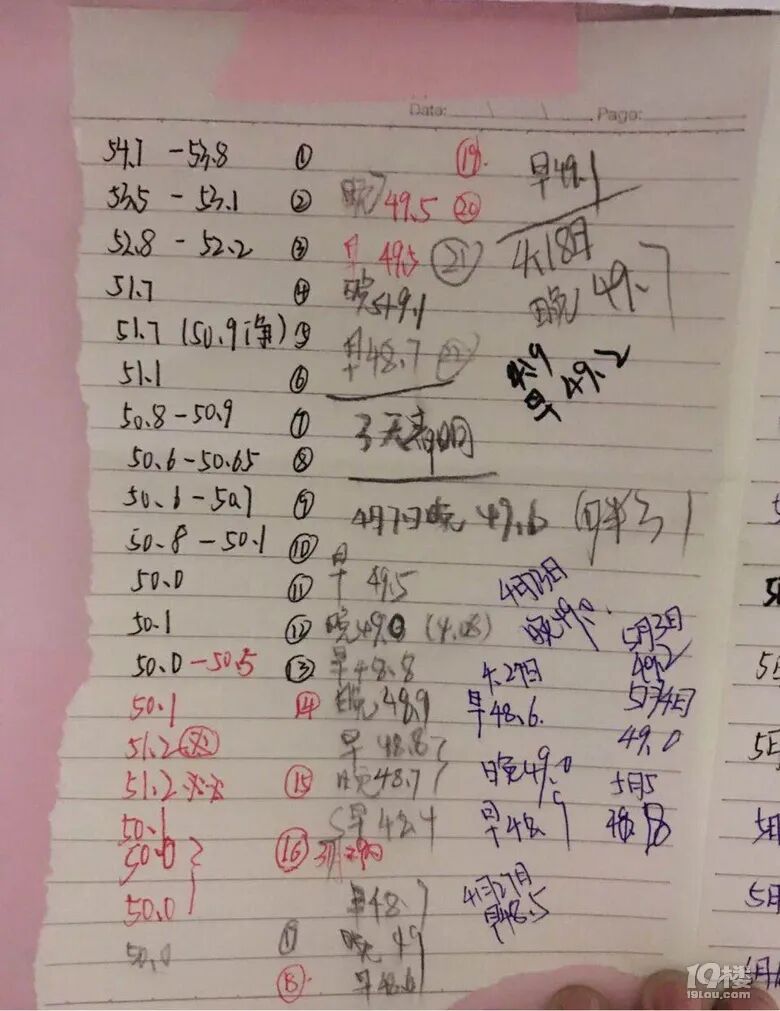 Date: \ \ Page:
54.1 - 53.8 ①
53.5 - 53.1 ②
52.8 - 52.2 ③
51.7 ④
51.7 (50.9净) ⑤
51.1 ⑥
50.8 - 50.9 ⑦
50.6 - 50.65 ⑧
50.6 - 50.7 ⑨
50.8 - 50.1 ⑩
50.0 ⑪
50.1 ⑫
50.0 - 50.5 ⑬
50.1 ⑭
51.2
51.2 ⑮
50.1
50.0 ⑯
50.0
50.0 ⑰
⑱
⑲
晚 49.5 ⑳
早 49.5 ㉑
晚 49.1
早 48.7 ㉒
3天清明
4月7日晚 49.6
早 49.5
晚 49.0 (4.08)
早 48.8
晚 48.9
早 48.8
晚 48.7
早 48.4
早 48.7
晚 49
早 48.6
早 49.1
4.18日
晚 49.7
4.19
早 49.2
4月23日
晚 49.0
4.27日
早 48.6
晚 49.0
早 48.9
4月27日
早 48.5
5月3日
49.2
5月4日
49.0
5月5
5
5月
5月
5月
5月
19楼
19lou.com